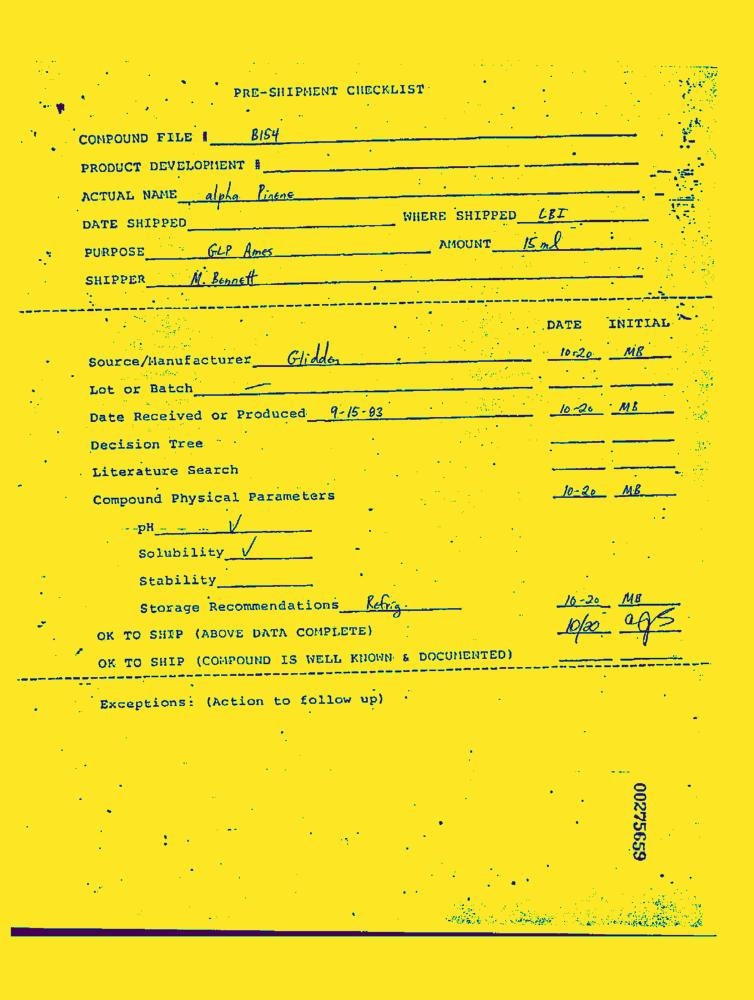 PRE-SHIPMENT CHECKLIST
COMPOUND FILE # B154
PRODUCT DEVELOPMENT #
ACTUAL NAME alpha Pinene
DATE SHIPPED WHERE SHIPPED LBI
PURPOSE GLP Ames AMOUNT 15 ml
SHIPPER M. Bennett
DATE INITIAL
Source/Manufacturer Glidden 10-20 MB
Lot or Batch —
Date Received or Produced 9-15-83 10-20 MB
Decision Tree
Literature Search
Compound Physical Parameters 10-20 MB
pH ✓
Solubility ✓
Stability
Storage Recommendations Refrig. 10-20 MB
OK TO SHIP (ABOVE DATA COMPLETE) 10/20 ags
OK TO SHIP (COMPOUND IS WELL KNOWN & DOCUMENTED)
Exceptions: (Action to follow up)
00275659